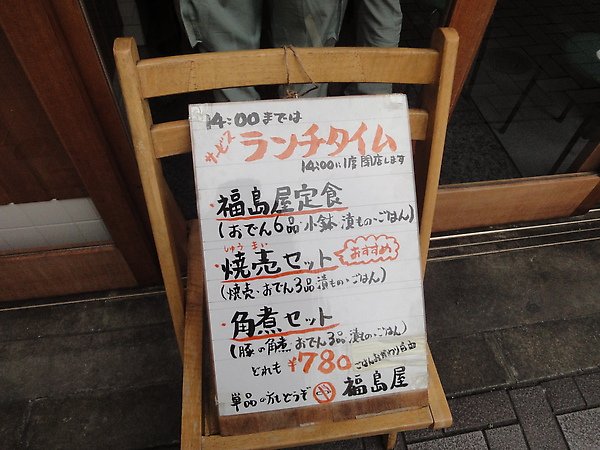 14:00までは
サービス ランチタイム
14:00に1度閉店します
・福島屋定食
(おでん6品・小鉢・漬もの・ごはん)
しゅうまい
・焼売セット おすすめ
(焼売・おでん3品 漬もの・ごはん)
・角煮セット
(豚の角煮 おでん3品 漬もの・ごはん)
どれも ¥780 ごはんおかわり自由
単品の方もどうぞ 福島屋